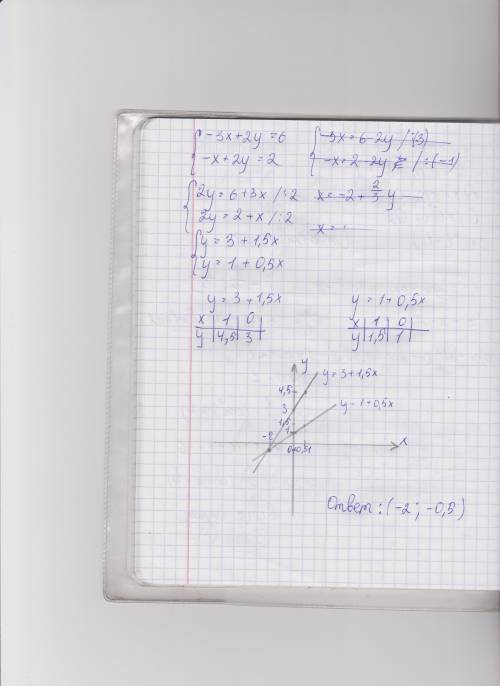 -3x+2y=6
-x+2y=2
-3x=6-2y /:(3)
-x=2-2y /:(-1)
2y=6+3x /:2
2y=2+x /:2
x=-2+2/3 y
x=
y=3+1,5x
y=1+0,5x
y=3+1,5x
x 1 0
y 4,5 3
y=1+0,5x
x 1 0
y 1,5 1
y
y=3+1,5x
4,5
3
y=1+0,5x
1,5
1
-2
x
0 0,5 1
Ответ: (-2; -0,5)